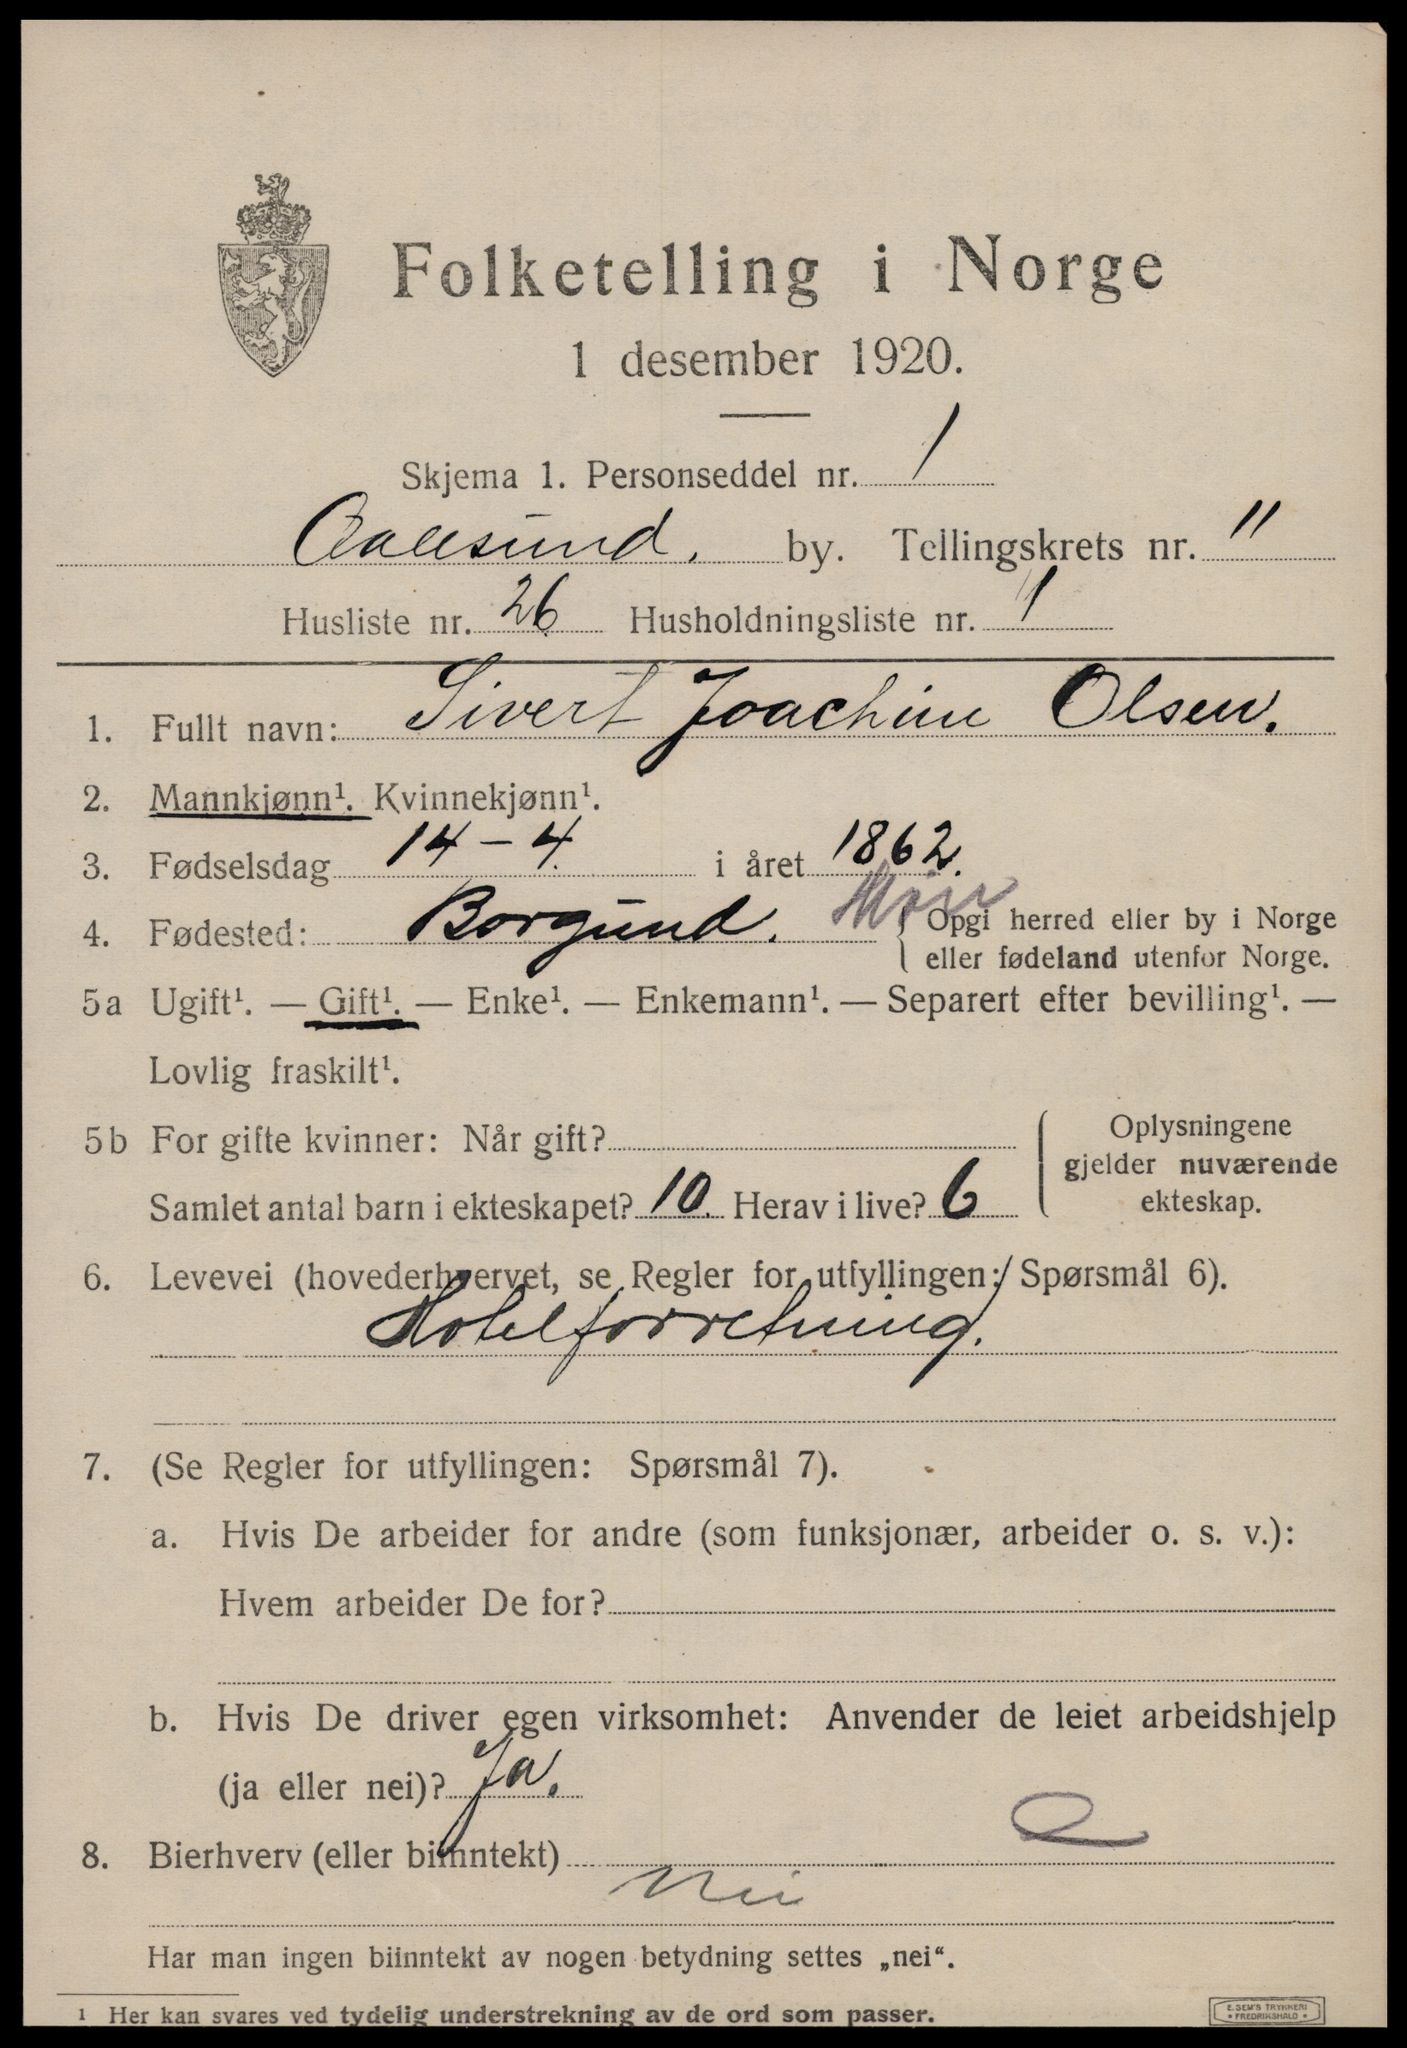 Folketelling i Norge
1 desember 1920.
Skjema 1. Personseddel nr. 1
Aalesund. by. Tellingskrets nr. 11
Husliste nr. 26 Husholdningsliste nr. 1
1. Fullt navn: Sivert Joachim Olsen.
2. Mannkjønn¹. Kvinnekjønn¹.
3. Fødselsdag 14 – 4. i året 1862.
4. Fødested: Borgund. Møre { Opgi herred eller by i Norge
eller fødeland utenfor Norge.
5a Ugift¹. — Gift¹. — Enke¹. — Enkemann¹. — Separert efter bevilling¹. —
Lovlig fraskilt¹.
5b For gifte kvinner: Når gift?
Samlet antal barn i ekteskapet? 10. Herav i live? 6
Oplysningene
gjelder nuværende
ekteskap.
6. Levevei (hovederhvervet, se Regler for utfyllingen: Spørsmål 6).
Hotelforretning.
7. (Se Regler for utfyllingen: Spørsmål 7).
a. Hvis De arbeider for andre (som funksjonær, arbeider o. s. v.):
Hvem arbeider De for?
b. Hvis De driver egen virksomhet: Anvender de leiet arbeidshjelp
(ja eller nei)? Ja.
8. Bierhverv (eller biinntekt)
Nei
Har man ingen biinntekt av nogen betydning settes „nei“.
¹ Her kan svares ved tydelig understrekning av de ord som passer.
E. SEM'S TRYKKERI
* FREDRIKSHALD *